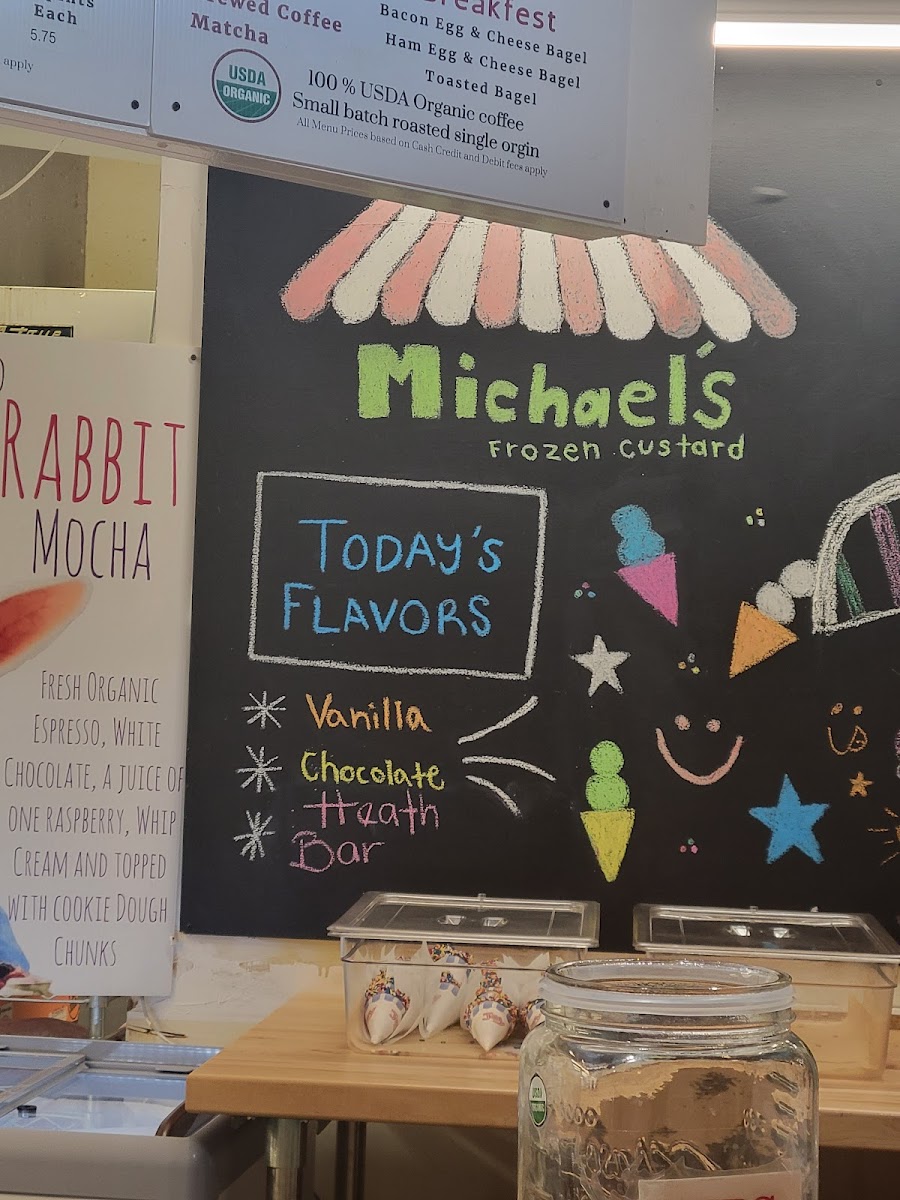 Each
5.75
apply
Coffee
Matcha
USDA
ORGANIC
Bacon Egg & Cheese Bagel
Ham Egg & Cheese Bagel
Toasted Bagel
100 % USDA Organic coffee
Small batch roasted single orgin
All Menu Prices based on Cash Credit and Debit fees apply
RABBIT
MOCHA
FRESH ORGANIC
ESPRESSO, WHITE
CHOCOLATE, A JUICE OF
ONE RASPBERRY, WHIP
CREAM AND TOPPED
WITH COOKIE DOUGH
CHUNKS
Michael's
Frozen custard
TODAY'S
FLAVORS
Vanilla
Chocolate
Heath
Bar